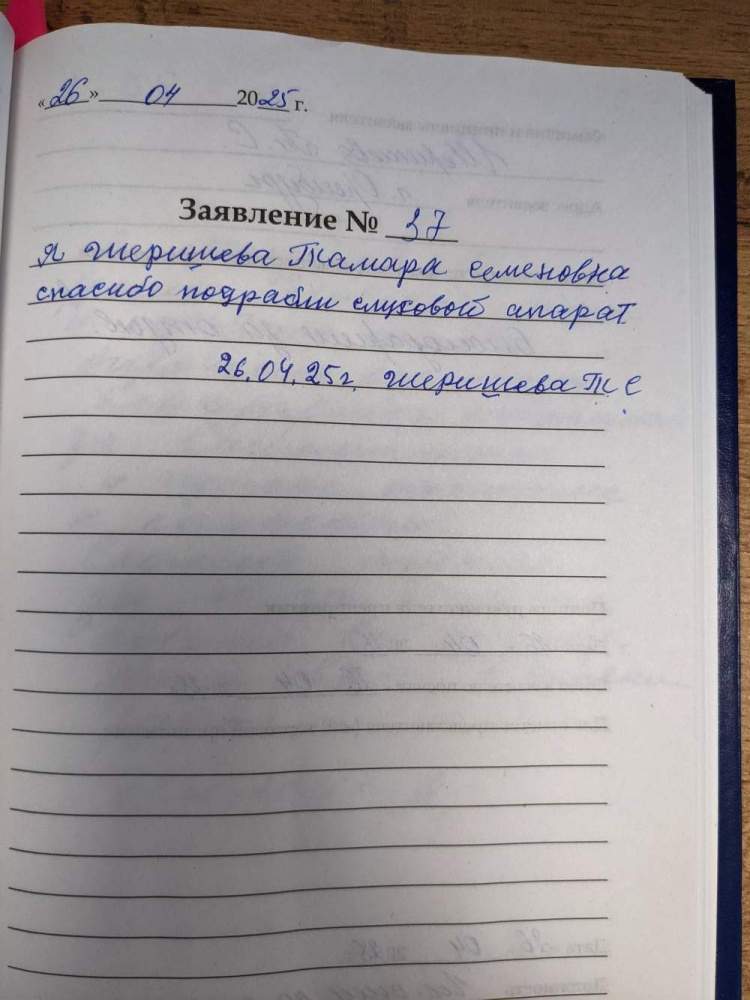 «26» 04 2025 г.
Заявление № 37
я жеришева Тамара семеновна
спасибо подрабли слуховой апарат
26.04.25г. жеришева Т С